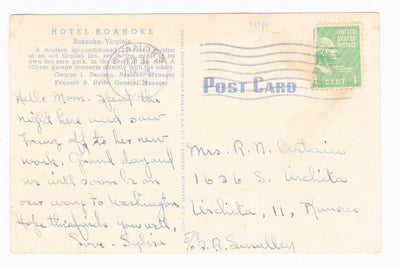 HOTEL ROANOKE
Roanoke, Virginia
A modern air-conditioned
of an old English Inn, set in the
own ten acre park, in the heart of the city. A
100-car garage connects directly with the lobby.
George L. Denison, Resident Manager
Kenneth R. Hyde, General Manager
POST CARD
UNITED STATES
POSTAGE
1 CENT 1
Hello Mom. Spent the
night here and saw
off to her new
work. Grand day and
we will soon be on
our way to Washington
Hope this finds you well,
Love. Sylvia
Mrs. R. N. Certain
1636 S. Wichita
Wichita, 11, Kansas
% G. B. Smalley